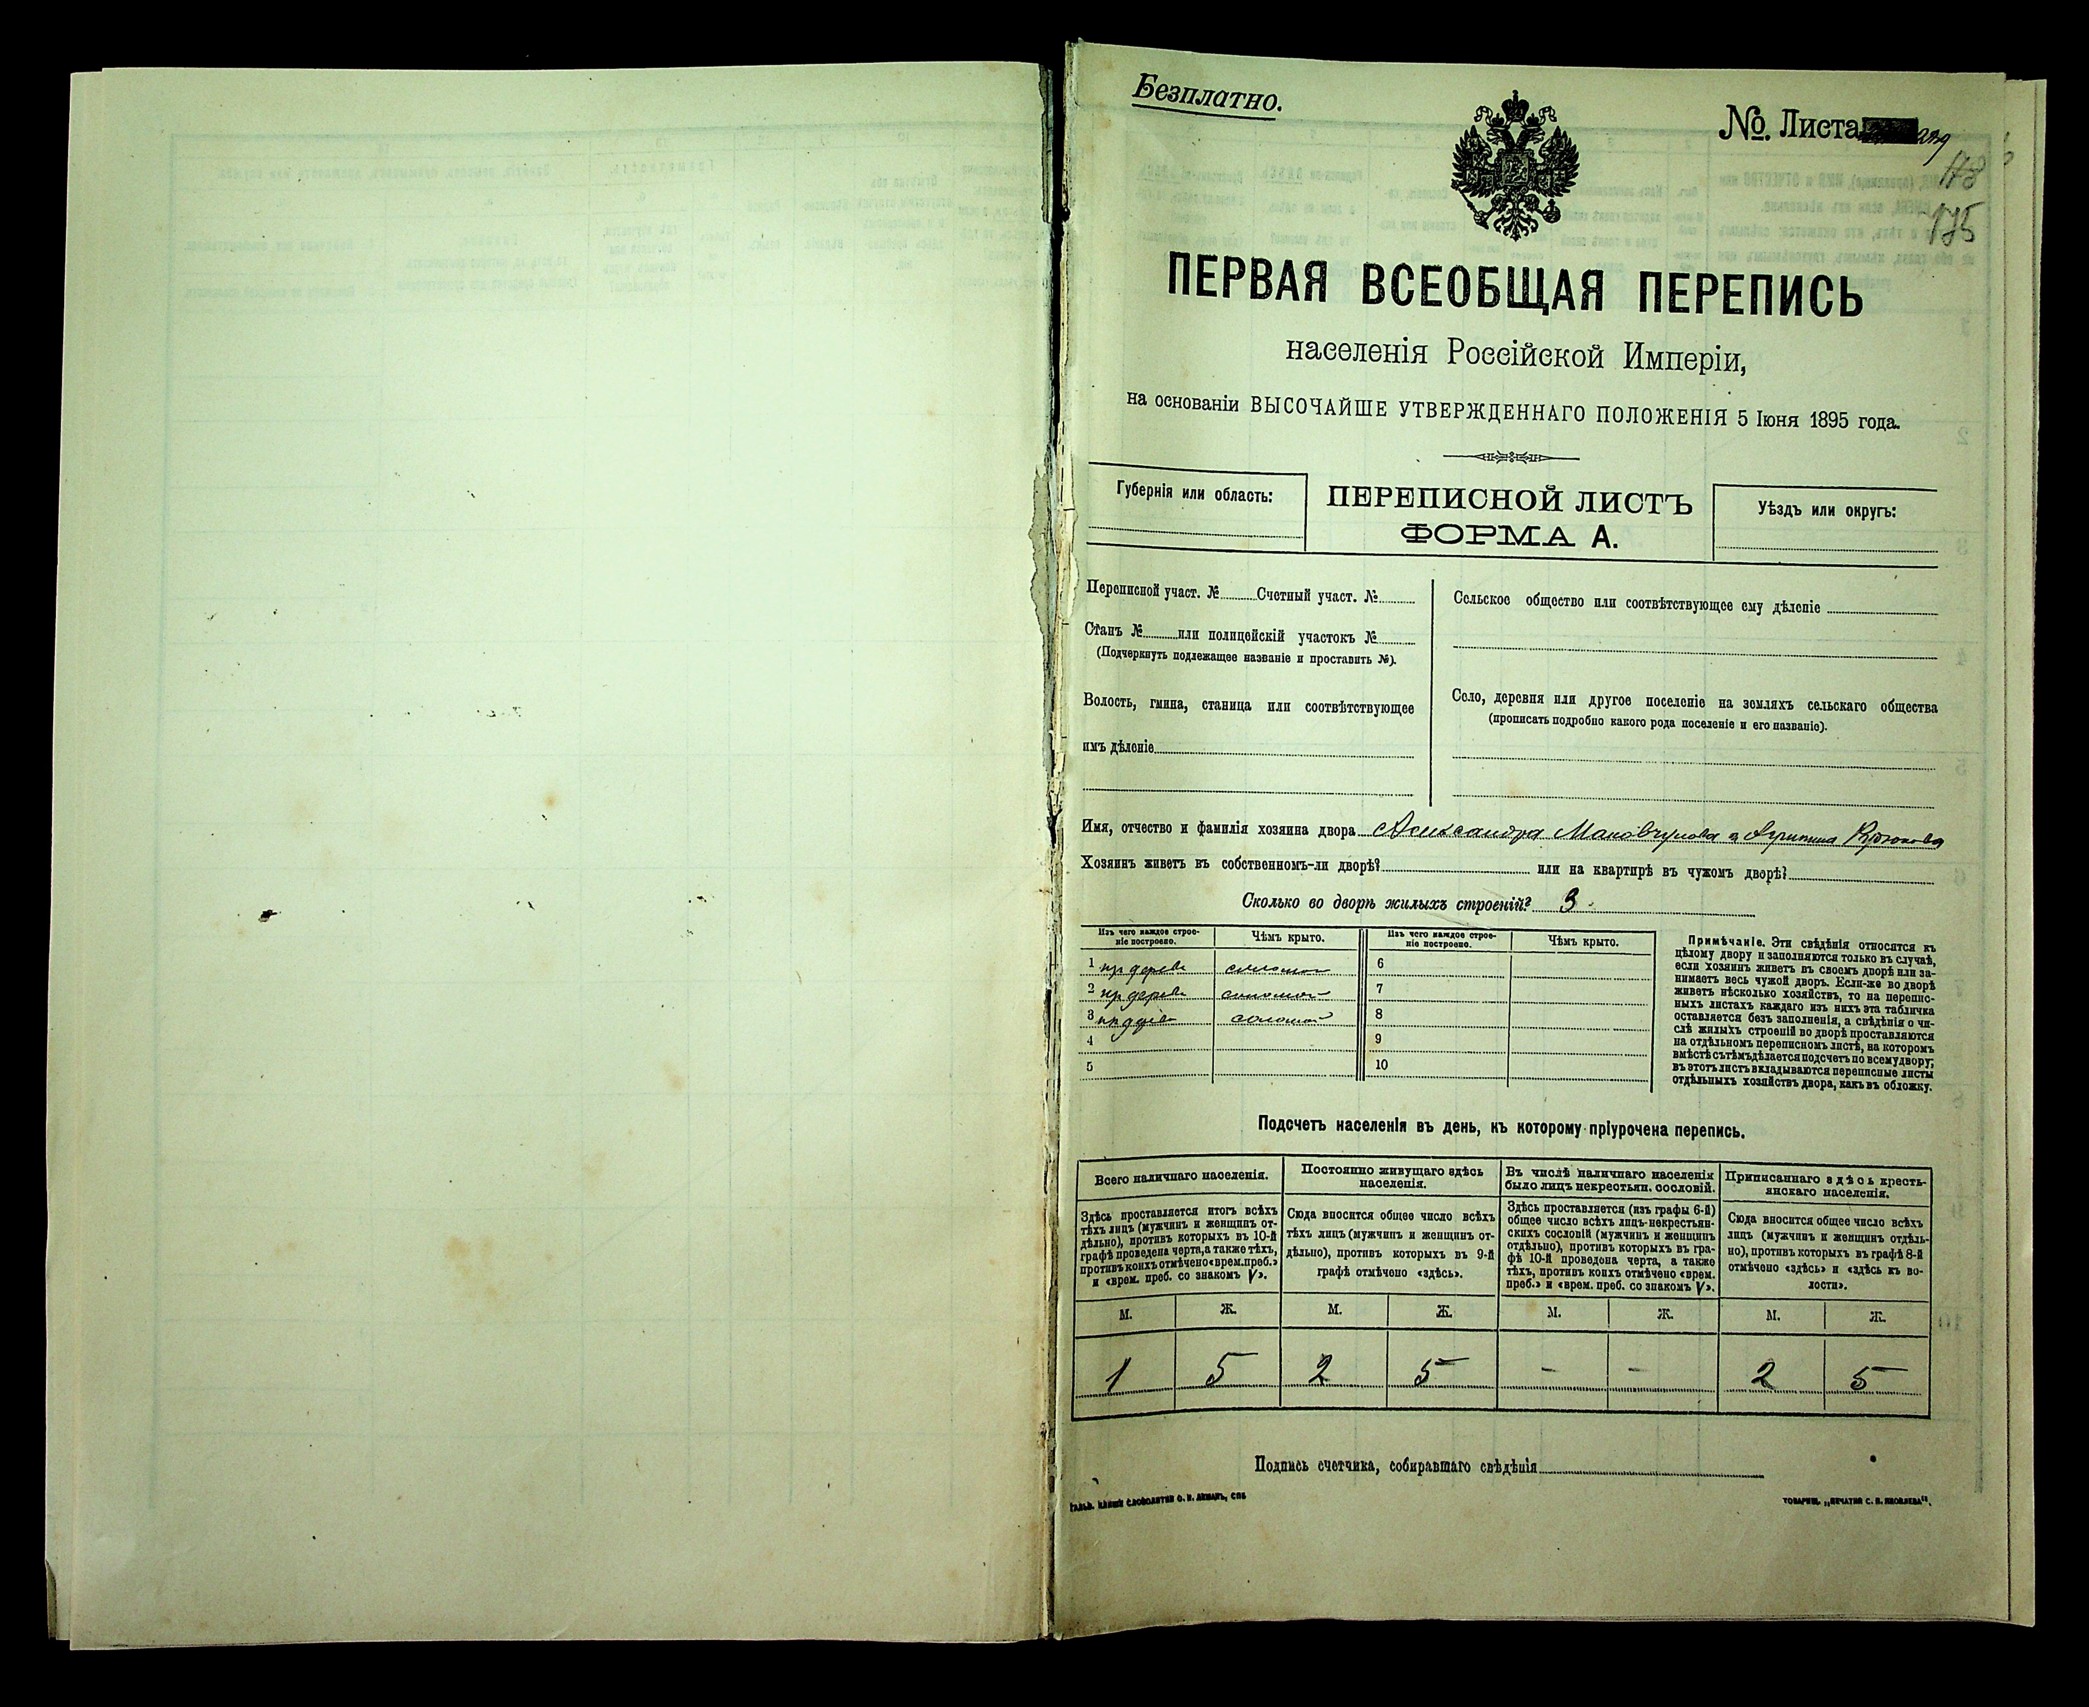 Безплатно.
№. Листа 229
178
175
ПЕРВАЯ ВСЕОБЩАЯ ПЕРЕПИСЬ
населенія Россійской Имперіи,
на основаніи ВЫСОЧАЙШЕ УТВЕРЖДЕННАГО ПОЛОЖЕНІЯ 5 Іюня 1895 года.
Губернія или область:
ПЕРЕПИСНОЙ ЛИСТЪ
ФОРМА А.
Уѣздъ или округъ:
Переписной участ. № Счетный участ. №
Станъ № или полицейскій участокъ №
(Подчеркнуть подлежащее названіе и проставить №).
Волость, гмина, станица или соотвѣтствующее
имъ дѣленіе
Сельское общество или соотвѣтствующее ему дѣленіе
Село, деревня или другое поселеніе на земляхъ сельскаго общества
(прописать подробно какого рода поселеніе и его названіе).
Имя, отчество и фамилія хозяина двора Александра и Агрипина Крюкова
Хозяинъ живетъ въ собственномъ-ли дворѣ? или на квартирѣ въ чужомъ дворѣ?
Сколько во дворѣ жилыхъ строеній? 3
Изъ чего каждое строе-
ніе построено.
Чѣмъ крыто.
Изъ чего каждое строе-
ніе построено.
Чѣмъ крыто.
1 дерева соломой 6
2 дерева соломой 7
3 соломой 8
4 9
5 10
Примѣчаніе. Эти свѣдѣнія относятся къ
цѣлому двору и заполняются только въ случаѣ,
если хозяинъ живетъ въ своемъ дворѣ или за-
нимаетъ весь чужой дворъ. Если-же во дворѣ
живетъ нѣсколько хозяйствъ, то на перепис-
ныхъ листахъ каждаго изъ нихъ эта табличка
оставляется безъ заполненія, а свѣдѣнія о чи-
слѣ жилыхъ строеній во дворѣ проставляются
на отдѣльномъ переписномъ листѣ, на которомъ
вмѣстѣ съ тѣмъ дѣлается подсчетъ по всему двору;
въ этотъ листъ вкладываются переписные листы
отдѣльныхъ хозяйствъ двора, какъ въ обложку.
Подсчетъ населенія въ день, къ которому пріурочена перепись.
Всего наличнаго населенія.
Здѣсь проставляется итогъ всѣхъ
тѣхъ лицъ (мужчинъ и женщинъ от-
дѣльно), противъ которыхъ въ 10-й
графѣ проведена черта, а также тѣхъ,
противъ коихъ отмѣчено «врем. преб.»
и «врем. преб. со знакомъ V».
Постоянно живущаго здѣсь
населенія.
Сюда вносится общее число всѣхъ
тѣхъ лицъ (мужчинъ и женщинъ от-
дѣльно), противъ которыхъ въ 9-й
графѣ отмѣчено «здѣсь».
Въ числѣ наличнаго населенія
было лицъ некрестьян. сословій.
Здѣсь проставляется (изъ графы 6-й)
общее число всѣхъ лицъ-некрестьян-
скихъ сословій (мужчинъ и женщинъ
отдѣльно), противъ которыхъ въ гра-
фѣ 10-й проведена черта, а также
тѣхъ, противъ коихъ отмѣчено «врем.
преб.» и «врем. преб. со знакомъ V».
Приписаннаго здѣсь кресть-
янскаго населенія.
Сюда вносится общее число всѣхъ
лицъ (мужчинъ и женщинъ отдѣль-
но), противъ которыхъ въ графѣ 8-й
отмѣчено «здѣсь» и «здѣсь къ во-
лости».
М. Ж. М. Ж. М. Ж. М. Ж.
1 5 2 5 - - 2 5
Подпись счетчика, собиравшаго свѣдѣнія
ГАЛЬВ. КЛИШЕ СЛОВОЛИТНИ О. И. ЛЕМАНЪ, СПБ
ТОВАРИЩ. „ПЕЧАТНЯ С. П. ЯКОВЛЕВА“.